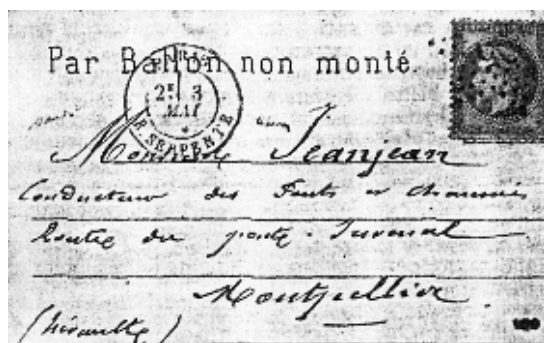 Par Ballon non monté.
2E 3
MAI
R. SERPENTE
Monsieur Jeanjean
Conducteur des Ponts et chaussées
Route du pont Juvenal
Montpellier
(hérault)